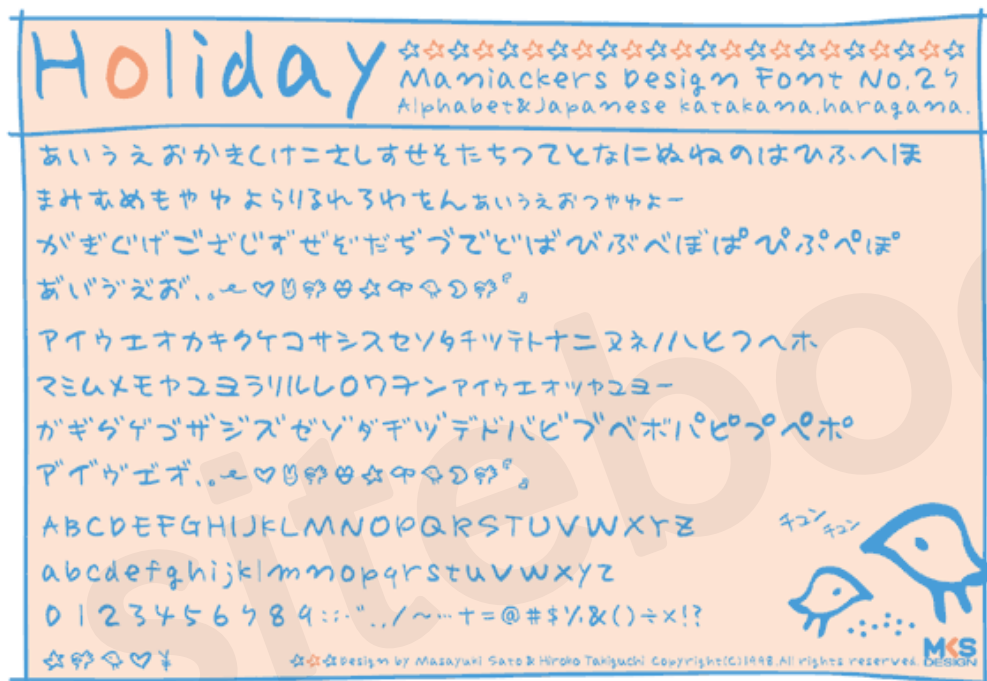 Holiday
☆☆☆☆☆☆☆☆☆☆☆☆☆☆☆☆☆☆☆☆☆☆☆
Maniackers Design Font No.27
Alphabet&Japanese katakana.haragana.
あいうえおかきくけこさしすせそたちつてとなにぬねのはひふへほ
まみむめもやゆよらりるれろわをんぁぃぅぇぉっゃゅょー
がぎぐげござじずぜぞだぢづでどばびぶべぼぱぴぷぺぽ
あ゛い゛ゔえ゛お゛、。～♡☆゛゜」
アイウエオカキクケコサシスセソタチツテトナニヌネノハヒフヘホ
マミムメモヤユヨラリルレロワヲンァィゥェォッャュョー
ガギグゲゴザジズゼゾダヂヅデドバビブベボパピプペポ
ア゛イ゛ヴエ゛オ゛、。～♡☆゛゜」
ABCDEFGHIJKLMNOPQRSTUVWXYZ
abcdefghijklmnopqrstuvwxyz
0123456789:;.,/~…+=@#$%&()÷×!?
チュンチュン
☆♡¥
☆☆☆Design by Masayuki Sato & Hiroko Takiguchi Copyright(C)1998.All rights reserved.
MKS
DESIGN
sitebo